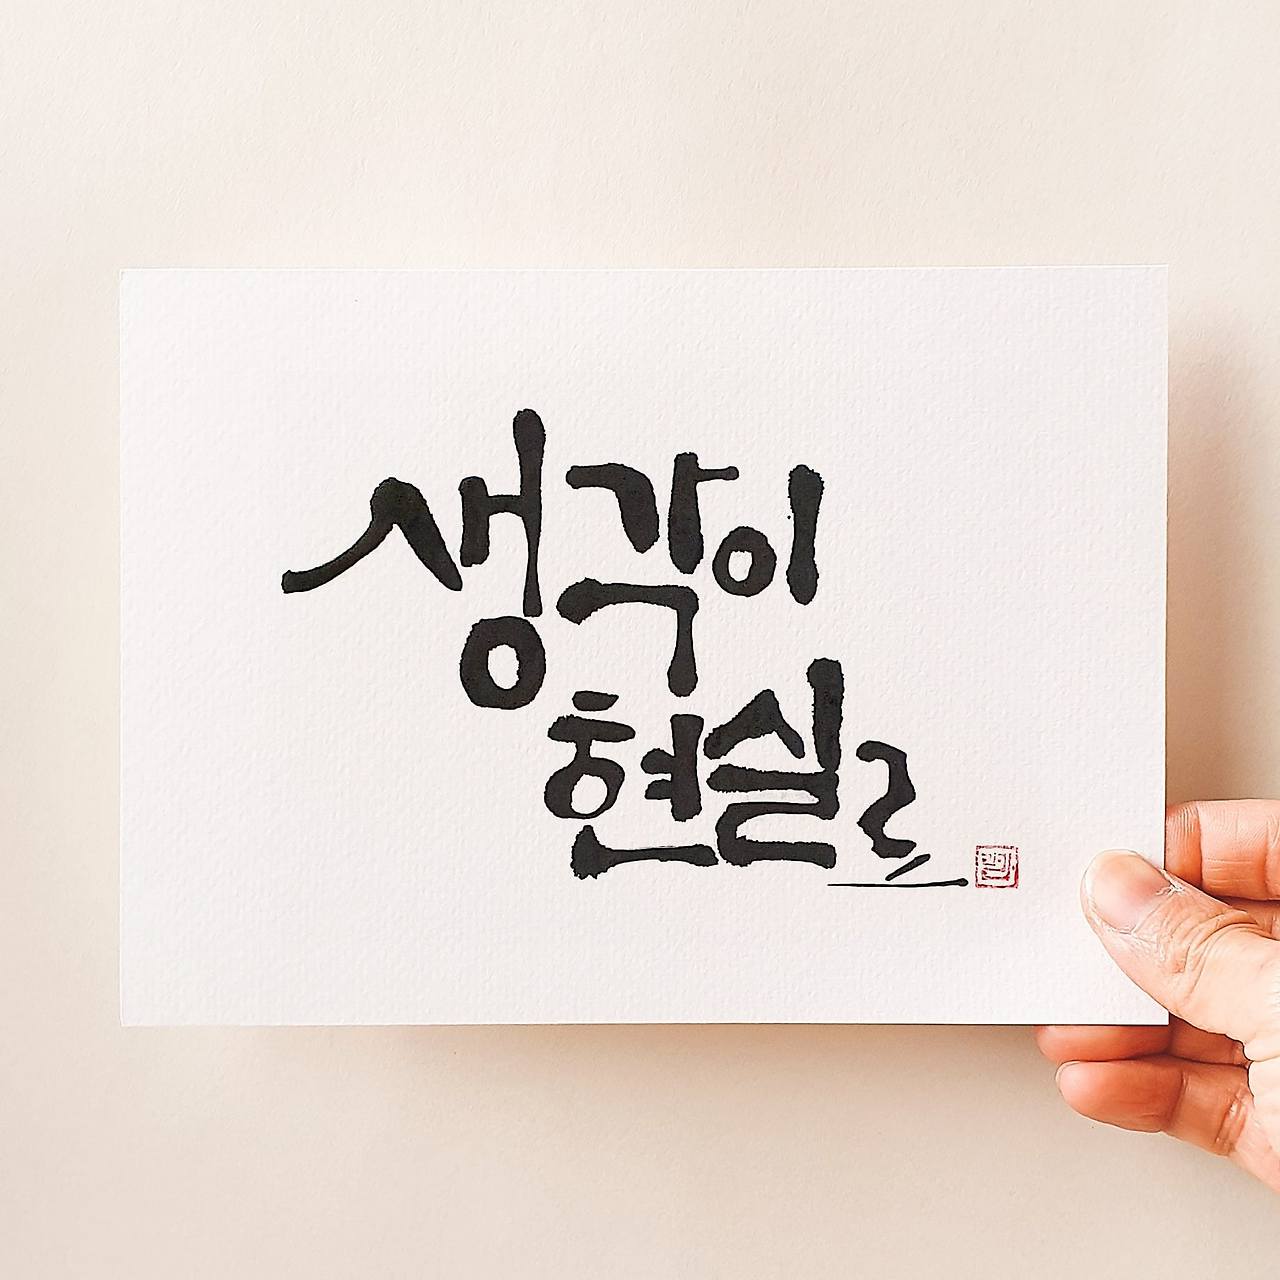 생각이
현실로